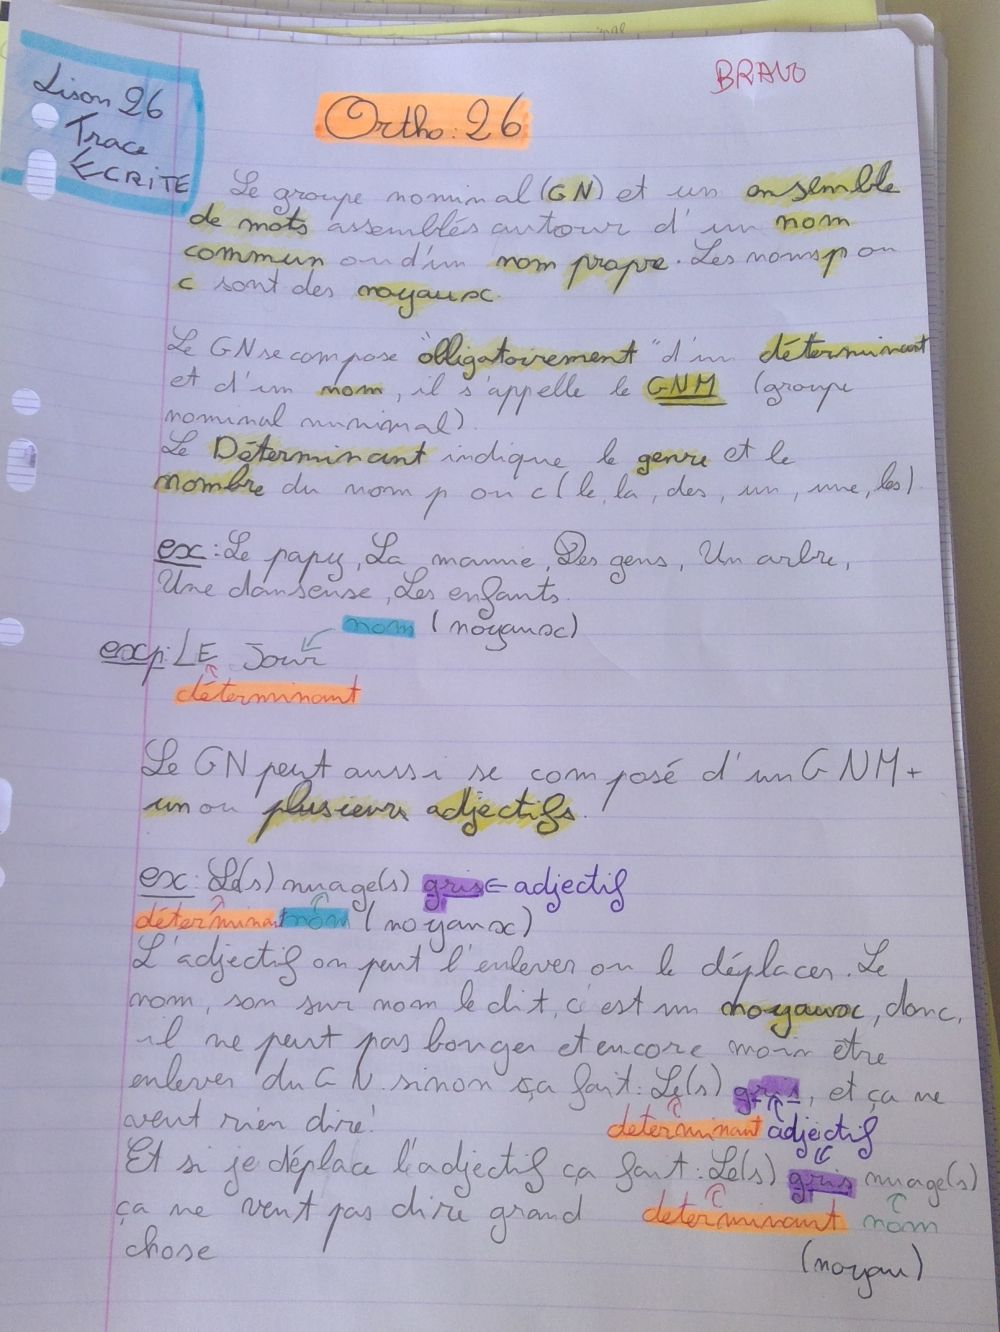 BRAVO
Lison 26
Trace
ECRITE
Ortho: 26
Le groupe nominal (GN) et un ensemble
de mots assemblés autour d'un nom
commun ou d'un nom propre. Les noms p ou
c sont des noyaux.
Le GN se compose "obligatoirement" d'un déterminant
et d'un nom, il s'appelle le GNM (groupe
nominal minimal).
Le Déterminant indique le genre et le
nombre du nom p ou c (le, la, des, un, une, les)
ex: Le papy, La mamie, Des gens, Un arbre,
Une danseuse, Les enfants.
nom (noyaux)
exp: LE Jour
déterminant
Le GN peut aussi se composé d'un GNM +
un ou plusieurs adjectifs.
ex: Le(s) nuage(s) gris ← adjectif
déterminant nom (noyaux)
L'adjectif on peut l'enlever ou le déplacer. Le
nom, son sur nom le dit, c'est un noyaux, donc,
il ne peut pas bouger et encore moin être
enlever du GN sinon ça fait: Le(s) gris, et ça ne
veut rien dire!
déterminant adjectif
Et si je déplace l'adjectif ça fait: Le(s) gris nuage(s)
ça ne veut pas dire grand déterminant nom
chose (noyau)